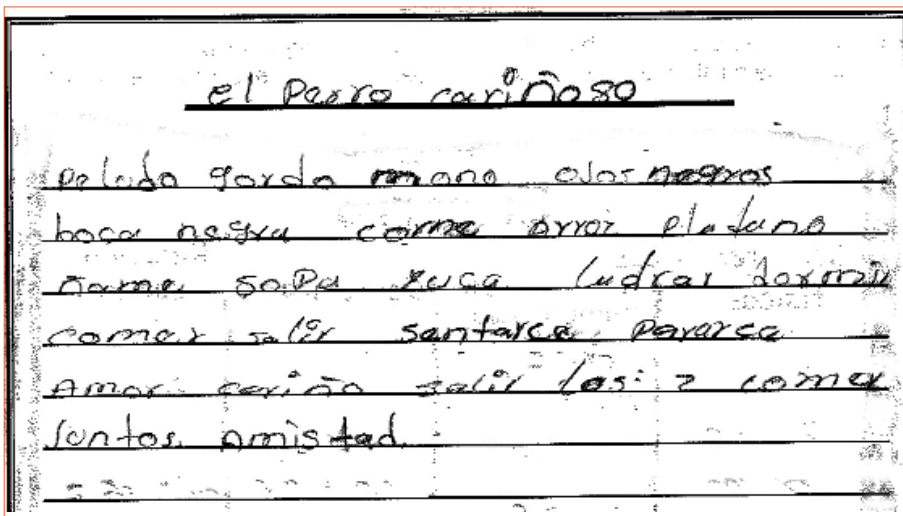 el Perro cariñoso
pelado gordo mono ojos negros
boca negra come arroz platano
ñame sopa yuca ladrar dormir
comer salir sentarce pararce
Amor cariño salir los 2 comer
juntos amistad